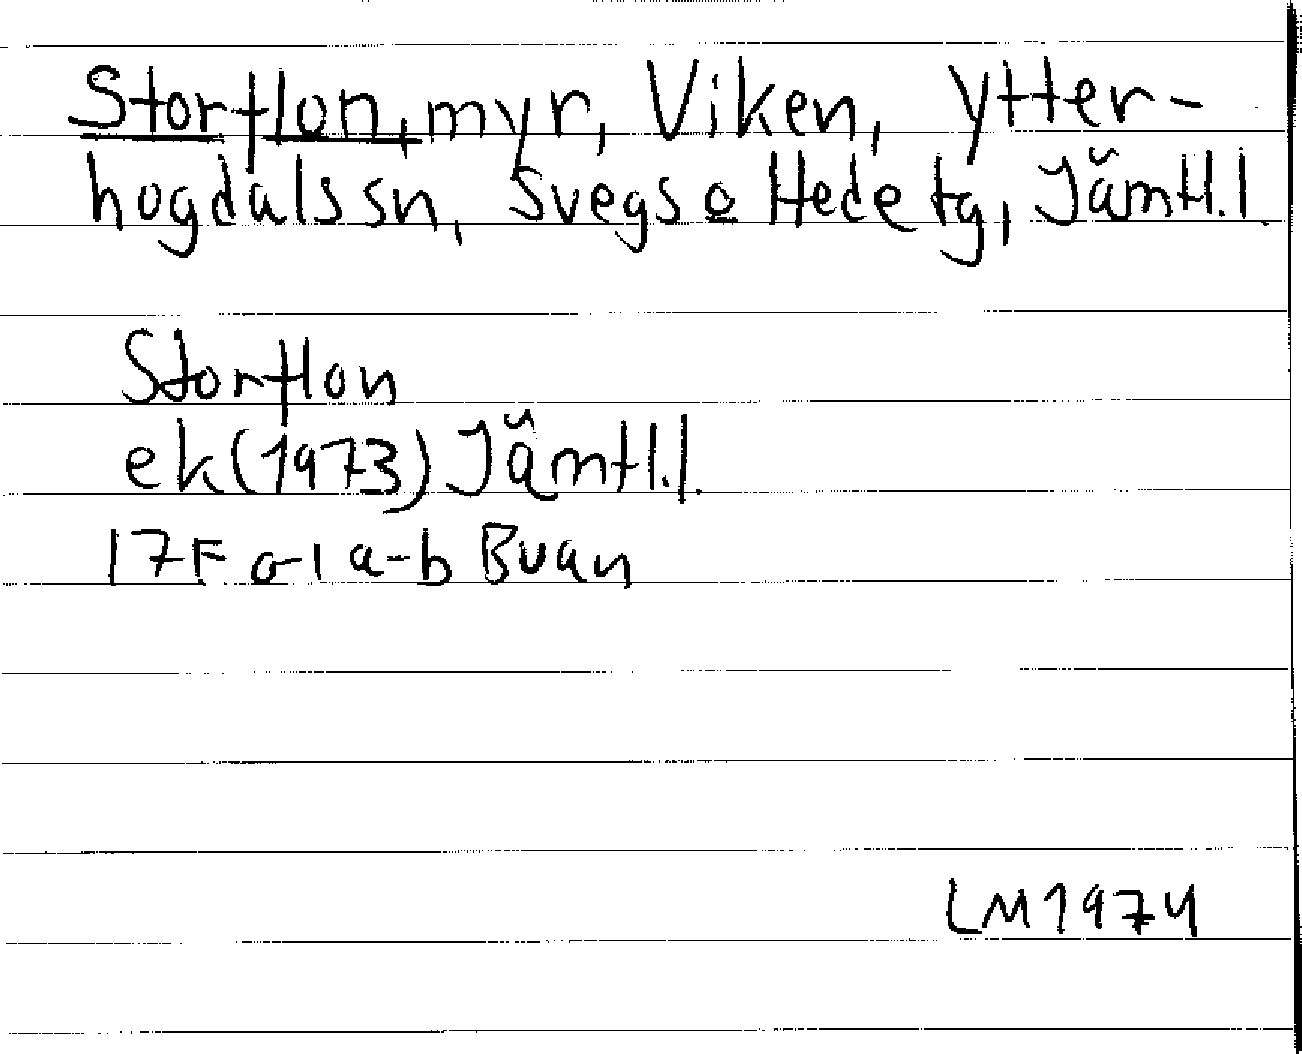 Storflon, myr, Viken, Ytter-
hogdals sn, Svegs o Hede tg, Jämtl.l.
Storflon
ek (1973) Jämtl.l.
17F 0-1 a-b Buan
LM 1974